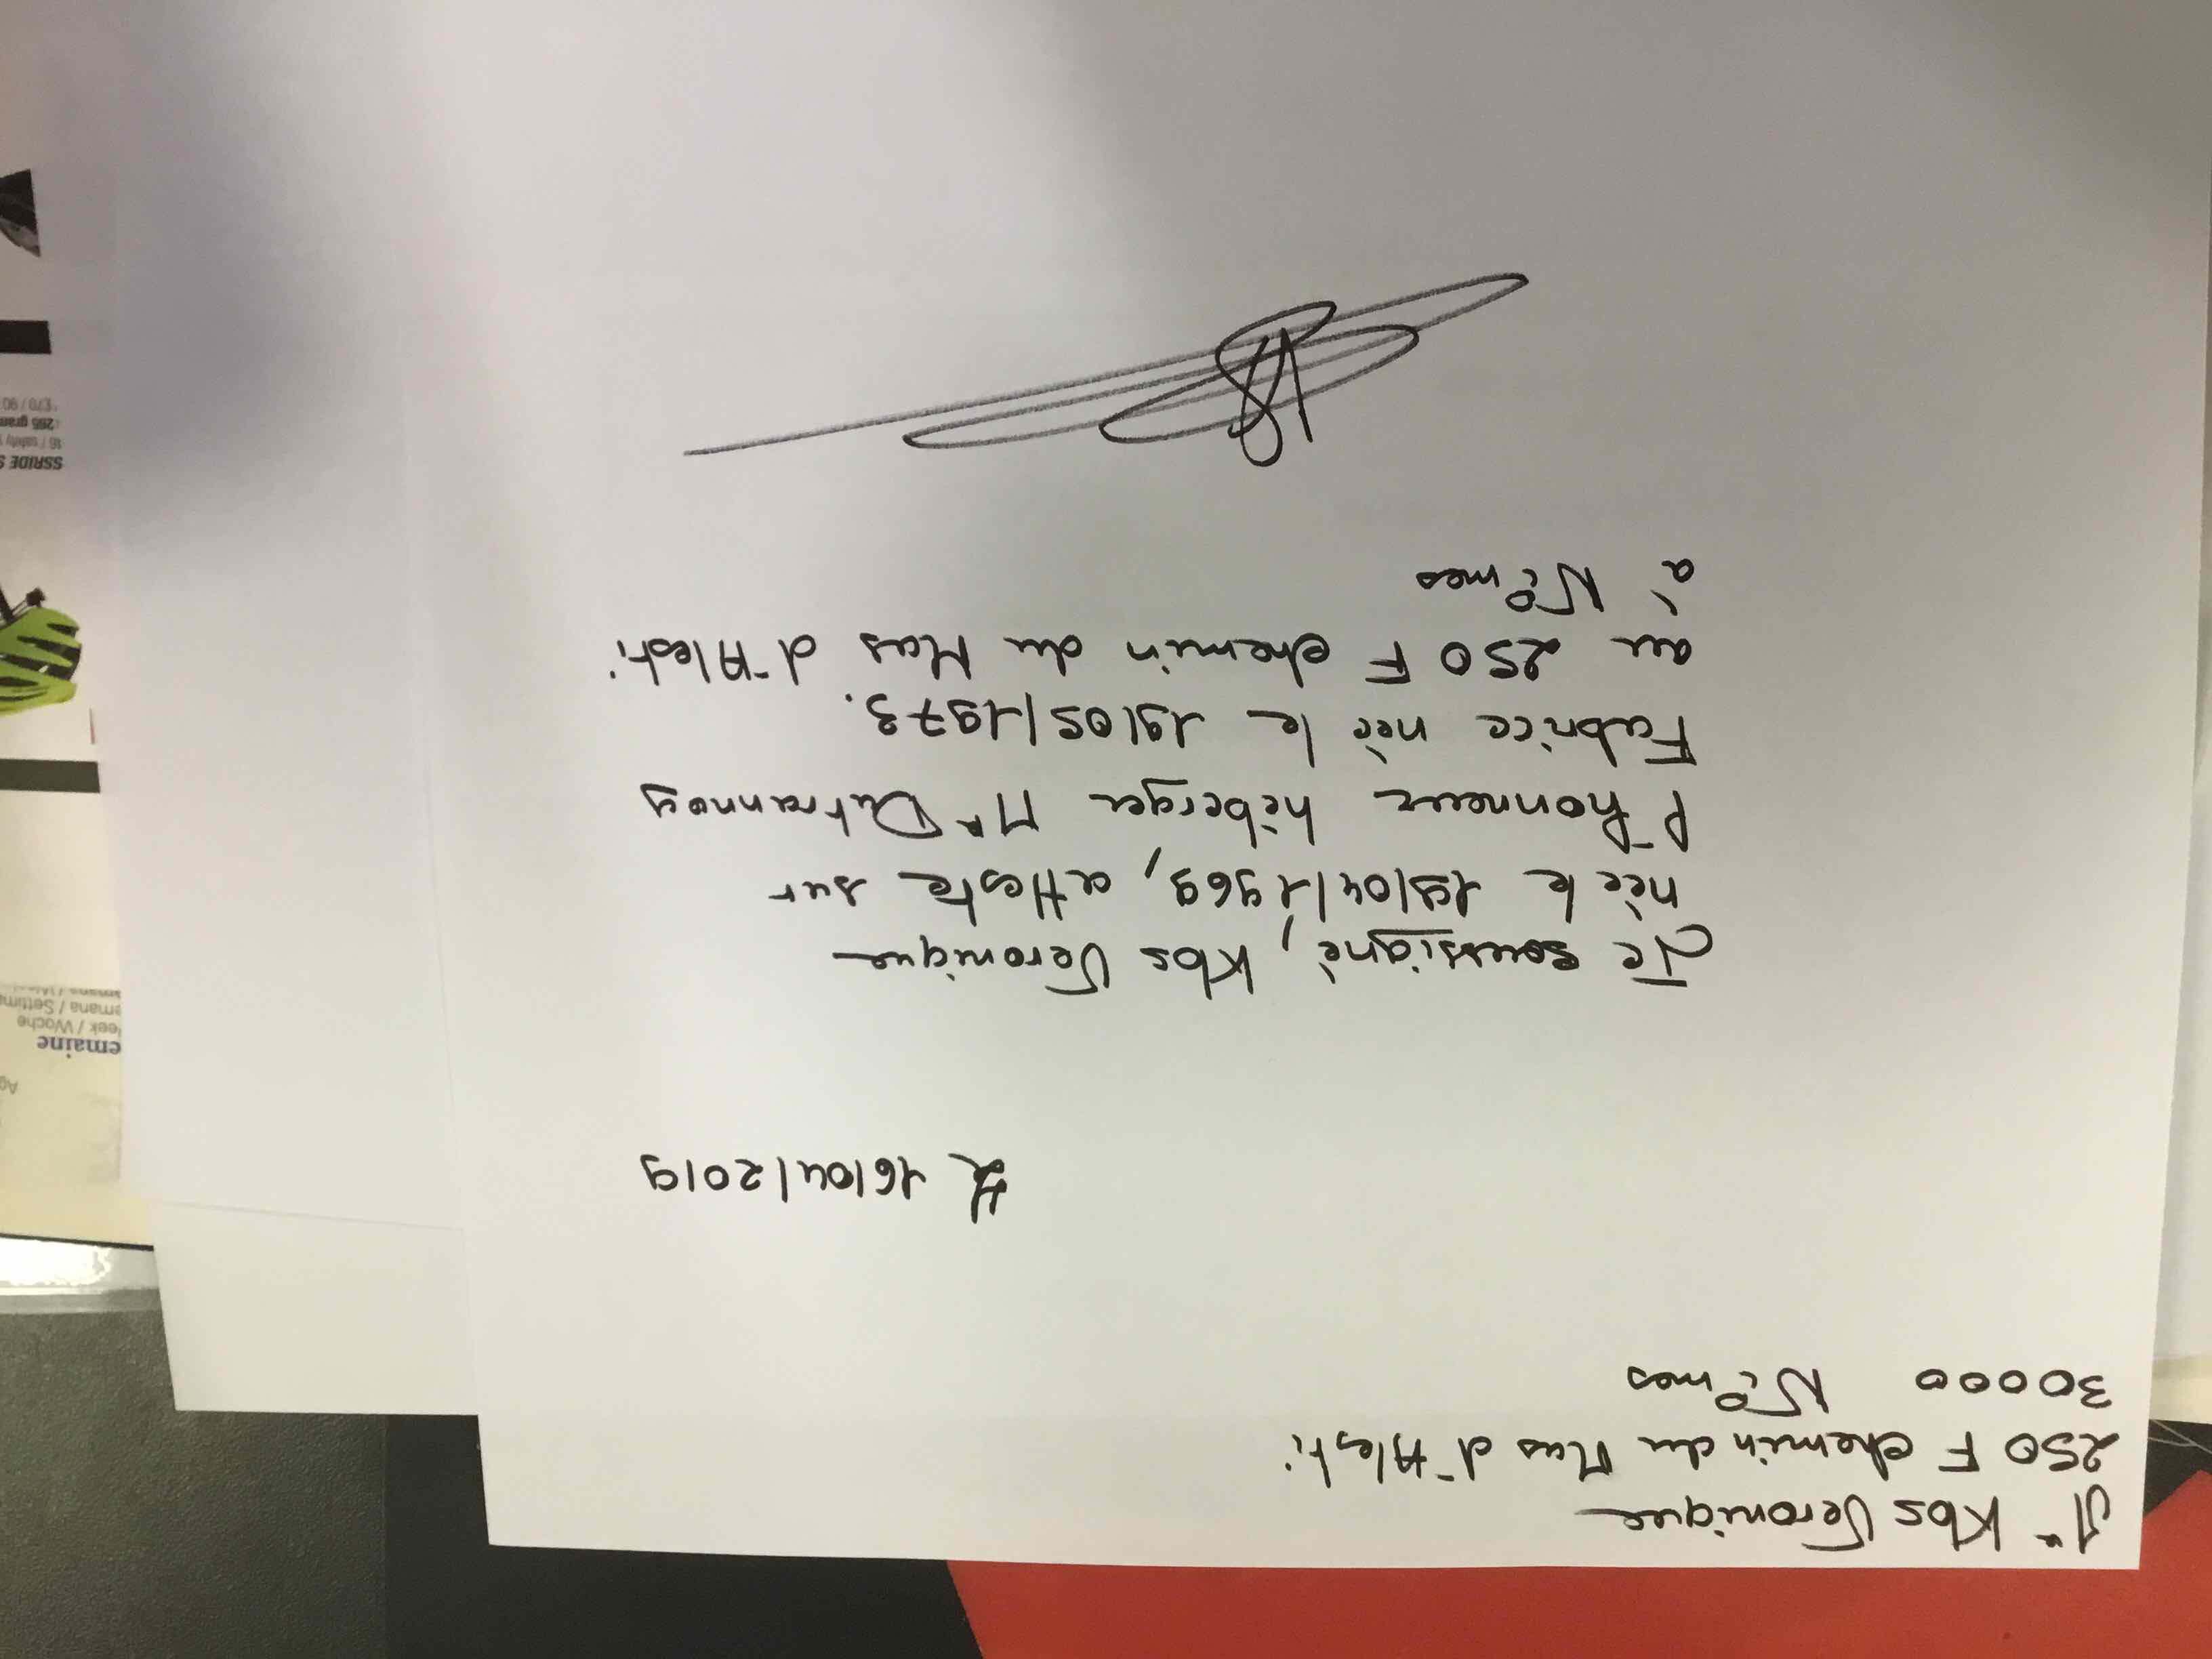 Me Kbs Veronique
250 F chemin du Mas d'Alesti
30000 Nîmes
Le 16/04/2019
Je soussigné, Kbs Veronique
née le 19/04/1969, atteste sur
l'honneur héberger Mr Dutrannoy
Fabrice née le 19/05/1973.
au 250 F chemin du Mas d'Alesti.
à Nîmes
emaine
eek / Woche
emana / Settim
SSRIDE S
16 / safety
265 gram